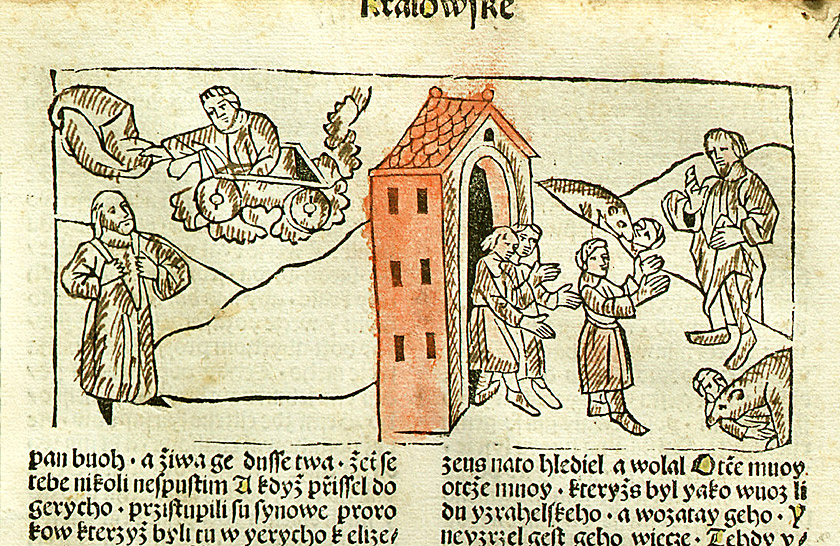 Kralowske
pan buoh · a žiwa ge dusse twa · žeť se
tebe nikoli nespustim A když přissel do
gerycho · przistupili su synowe proro
kow kterzyž byli tu w yerycho k elize/
zeus nato hlediel a wolal Otče muoy.
otcže muoy · kteryžs byl yako wuoz li
du yzrahelskeho · a wozatay geho · Y
neyzrzel gest geho wiecze · Tehdy v/